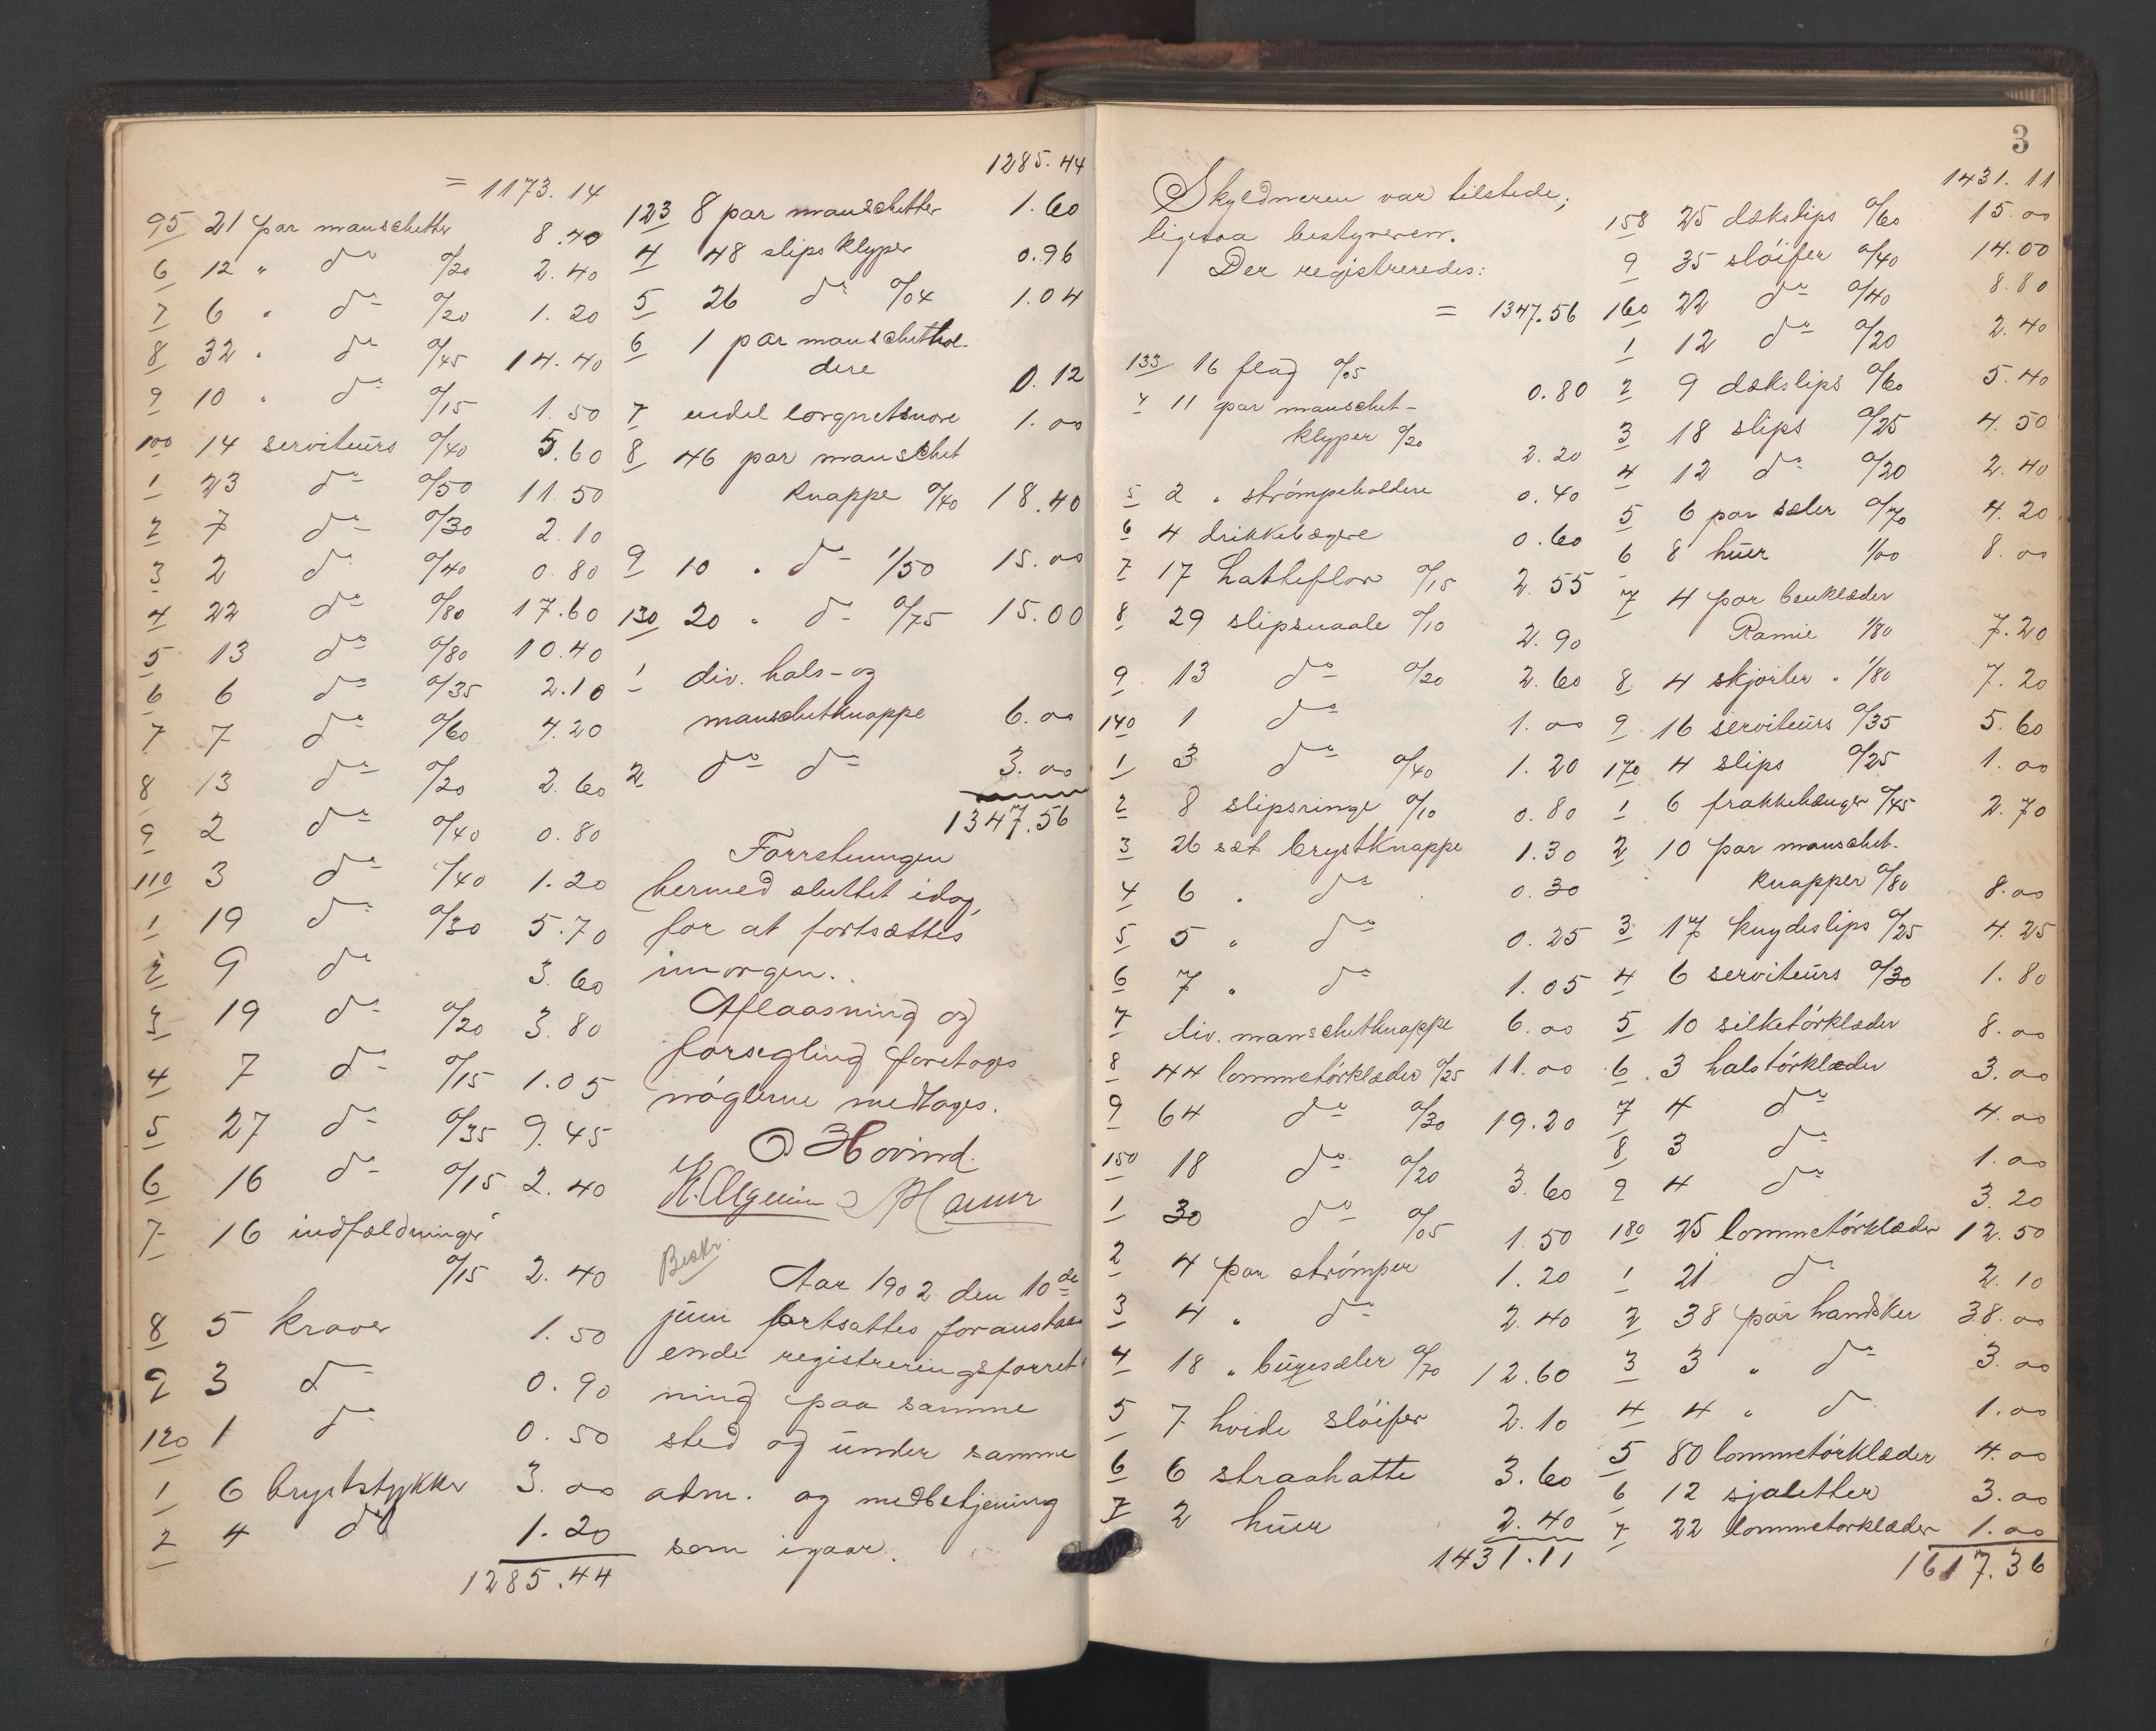 = 1173.14
95 21 par manschetter 8.40
6 12 " do 0/20 2.40
7 6 " do 0/20 1.20
8 32 " do 0/45 14.40
9 10 " do 0/15 1.50
100 14 serviteurs 0/40 5.60
1 23 do 0/50 11.50
2 7 do 0/30 2.10
3 2 do 0/40 0.80
4 22 do 0/80 17.60
5 13 do 0/80 10.40
6 6 do 0/35 2.10
7 7 do 0/60 4.20
8 13 do 0/20 2.60
9 2 do 0/40 0.80
110 3 do 0/40 1.20
1 19 do 0/30 5.70
2 9 do 3.60
3 19 do 0/20 3.80
4 7 do 0/15 1.05
5 27 do 0/35 9.45
6 16 do 0/15 2.40
7 16 indfældninger
0/15 2.40
8 5 kraver 1.50
9 3 do 0.90
120 1 do 0.50
1 6 bryststykker 3.00
2 4 do 1.20
1285.44
1285.44
123 8 par manschetter 1.60
4 48 slips klyper 0.96
5 26 do 0/04 1.04
6 1 par manschethol-
dere 0.12
7 endel lorgnetsnore 1.00
8 46 par manschet
knappe 0/40 18.40
9 10 " do 1/50 15.00
130 20 " do 0/75 15.00
1 div. hals- og
manschetknappe 6.00
2 do do 3.00
1347.56
Forretningen
hermed sluttet idag,
for at fortsættes
imorgen.
Aflaasning og
forsegling foretages
nøglerne medtages.
O Hovind.
Beskr.
Aar 1902 den 10de
juni fortsattes foranstaa-
ende registreringsforret-
ning paa samme
sted og under samme
adm. og medbetjening
som igaar.
3
Skyldneren var tilstede;
ligesaa bestyreren.
Der registreredes:
= 1347.56
133 16 flag 0/05 0.80
4 11 par manschet-
klyper 0/20 2.20
5 2 " strømpeholdere 0.40
6 4 drikkebægere 0.60
7 17 hatteflor 0/15 2.55
8 29 slipsnaale 0/10 2.90
9 13 do 0/20 2.60
140 1 do 1.00
1 3 do 0/40 1.20
2 8 slipsringe 0/10 0.80
3 26 sæt brystknappe 1.30
4 6 " do 0.30
5 5 " do 0.25
6 7 " do 1.05
7 div. manschetknappe 6.00
8 44 lommetørklæder 0/25 11.00
9 64 do 0/30 19.20
150 18 do 0/20 3.60
1 30 do 0/05 1.50
2 4 par strømper 1.20
3 4 " do 2.40
4 18 " buxesæler 0/70 12.60
5 7 hvide sløifer 2.10
6 6 straahatte 3.60
7 2 huer 2.40
1431.11
1431.11
158 25 dækslips 0/60 15.00
9 35 sløifer 0/40 14.00
160 22 do 0/40 8.80
1 12 do 0/20 2.40
2 9 dækslips 0/60 5.40
3 18 slips 0/25 4.50
4 12 do 0/20 2.40
5 6 par sæler 0/70 4.20
6 8 huer 1/00 8.00
7 4 par benklæder
Ramie 1/80 7.20
8 4 skjorter " 1/80 7.20
9 16 serviteurs 0/35 5.60
170 4 slips 0/25 1.00
1 6 frakkehænger 0/45 2.70
2 10 par manschet-
knapper 0/80 8.00
3 17 knydeslips 0/25 4.25
4 6 serviteurs 0/30 1.80
5 10 silketørklæder 8.00
6 3 halstørklæder 3.00
7 4 do 4.00
8 3 do 1.00
9 4 do 3.20
180 25 lommetørklæder 12.50
1 21 do 2.10
2 38 par handsker 38.00
3 3 " do 3.00
4 4 " do 1.00
5 80 lommetørklæder 4.00
6 12 sjaletter 3.00
7 22 lommetørklæder 1.00
1617.36